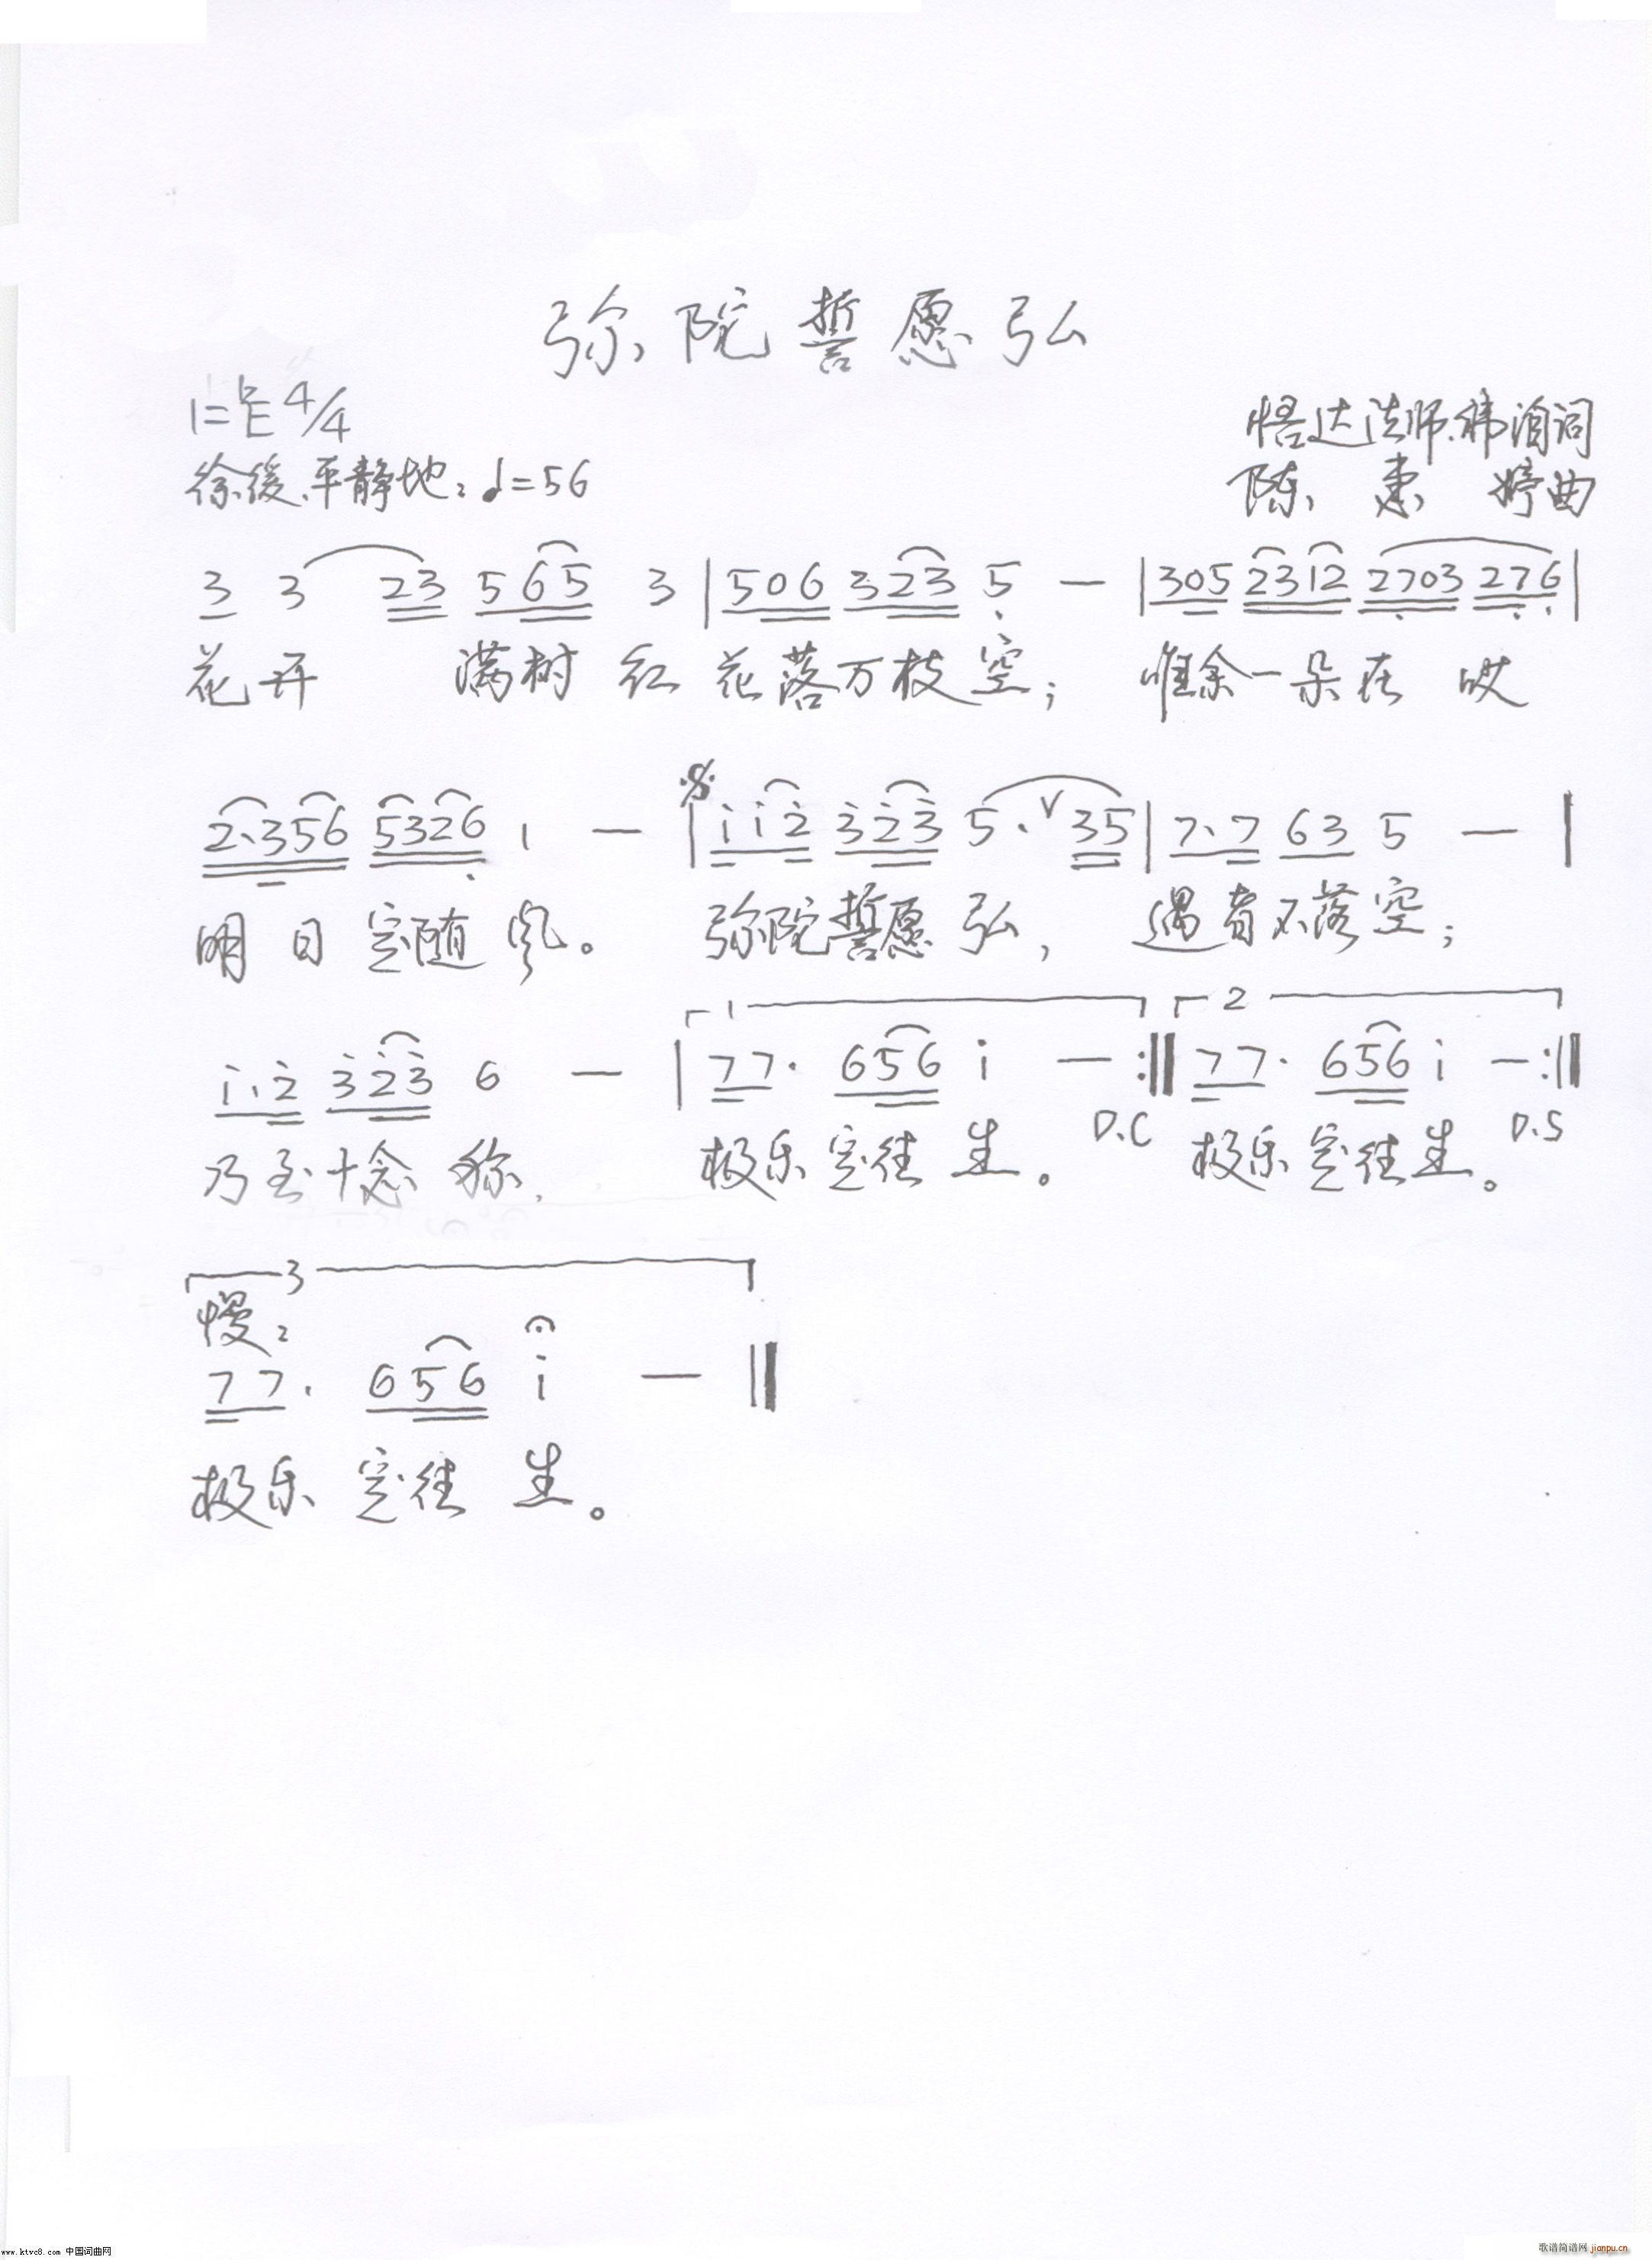 弥陀誓愿弘
1=♭E 4/4
悟达法师、祎洎词
徐缓、平静地: ♩=56
陈 惠 婷曲
3 3 23 565 3 | 506 323 5 — | 305 2312 2703 276 |
花开 满树 红 花落万枝空; 唯余一朵在 哎
2·356 5326 1 — | 112 323 5·V 35 | 7·7 63 5 — |
明日定随风。 弥陀誓愿弘, 遇者不落空;
1·2 323 6 — | 1 77· 656 1 — :‖ 2 77· 656 1 — :‖
乃至十念称, 极乐定往生。 D.C 极乐定往生。 D.S
3
慢:
77· 656 1 — ‖
极乐定往生。
www.ktvc8.com 中国词曲网
歌谱简谱网 jianpu.cn